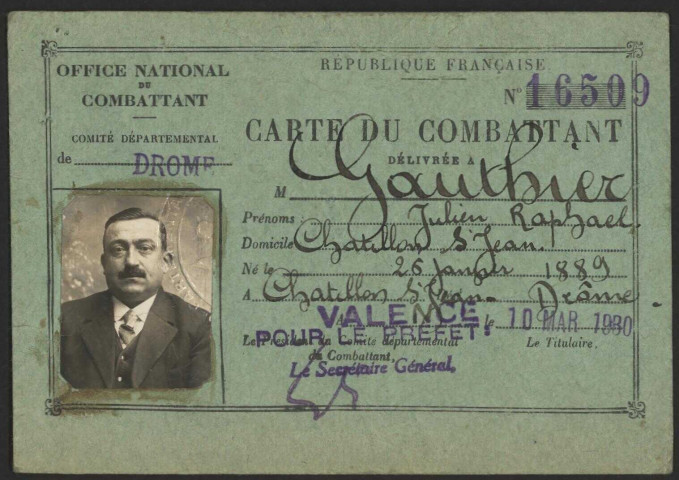 OFFICE NATIONAL
DU
COMBATTANT
COMITÉ DÉPARTEMENTAL
de DROME
RÉPUBLIQUE FRANÇAISE
N° 16509
CARTE DU COMBATTANT
DÉLIVRÉE A
M Gauthier
Prénoms : Julien Raphael
Domicile Chatillon St Jean.
Né le 26 janvier 1889
A Chatillon St Jean - Drôme
A VALENCE, le 10 MAR 1930
POUR LE PRÉFET:
Le Président du Comité départemental
du Combattant,
Le Titulaire,
Le Secrétaire Général,